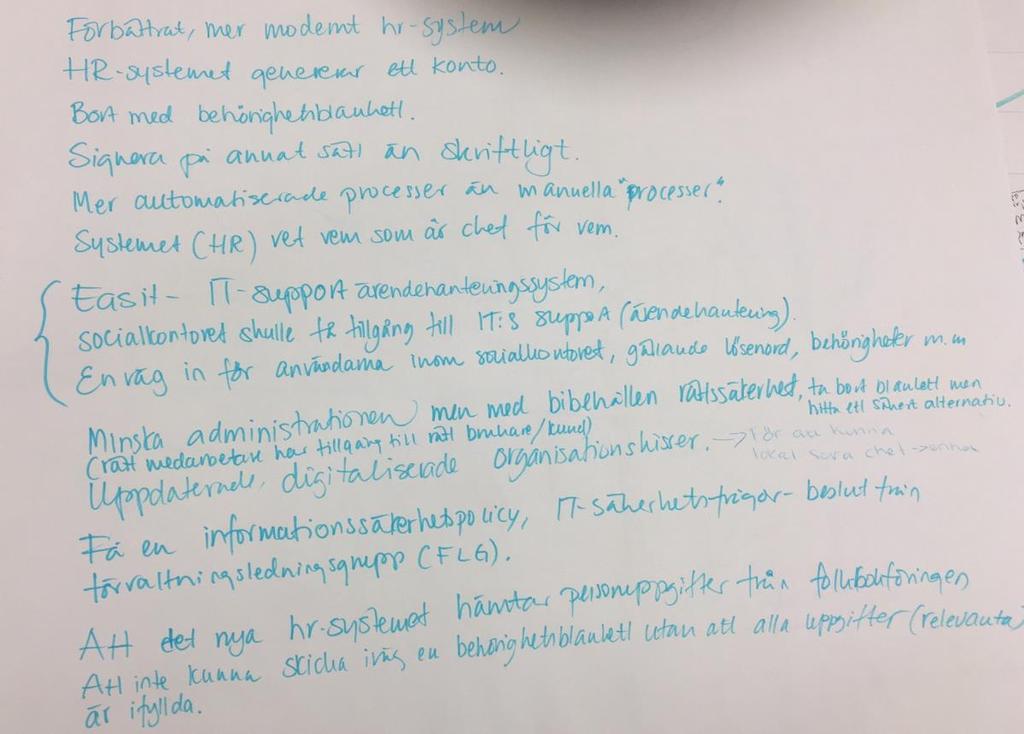 Förbättrat, mer modernt hr-system
HR-systemet genererar ett konto.
Bort med behörighetsblankett.
Signera på annat sätt än skriftligt.
Mer automatiserade processer än manuella "processer".
Systemet (HR) vet vem som är chef för vem.
Easit - IT-support ärendehanteringssystem,
socialkontoret skulle få tillgång till IT:s support (ärendehantering).
En väg in för användarna inom socialkontoret, gällande lösenord, behörigheter m.m
Minska administrationen men med bibehållen rättssäkerhet, ta bort blankett men
hitta ett säkert alternativ.
(rätt medarbetare har tillgång till rätt brukare/kund)
Uppdaterade, digitaliserade organisationsskisser. → För att kunna
chef → enhet
Få en informationssäkerhetspolicy, IT-säkerhetsfrågor - beslut från
förvaltningsledningsgrupp (FLG).
Att det nya hr-systemet hämtar personuppgifter från folkbokföringen
Att inte kunna skicka iväg en behörighetsblankett utan att alla uppgifter (relevanta)
är ifyllda.